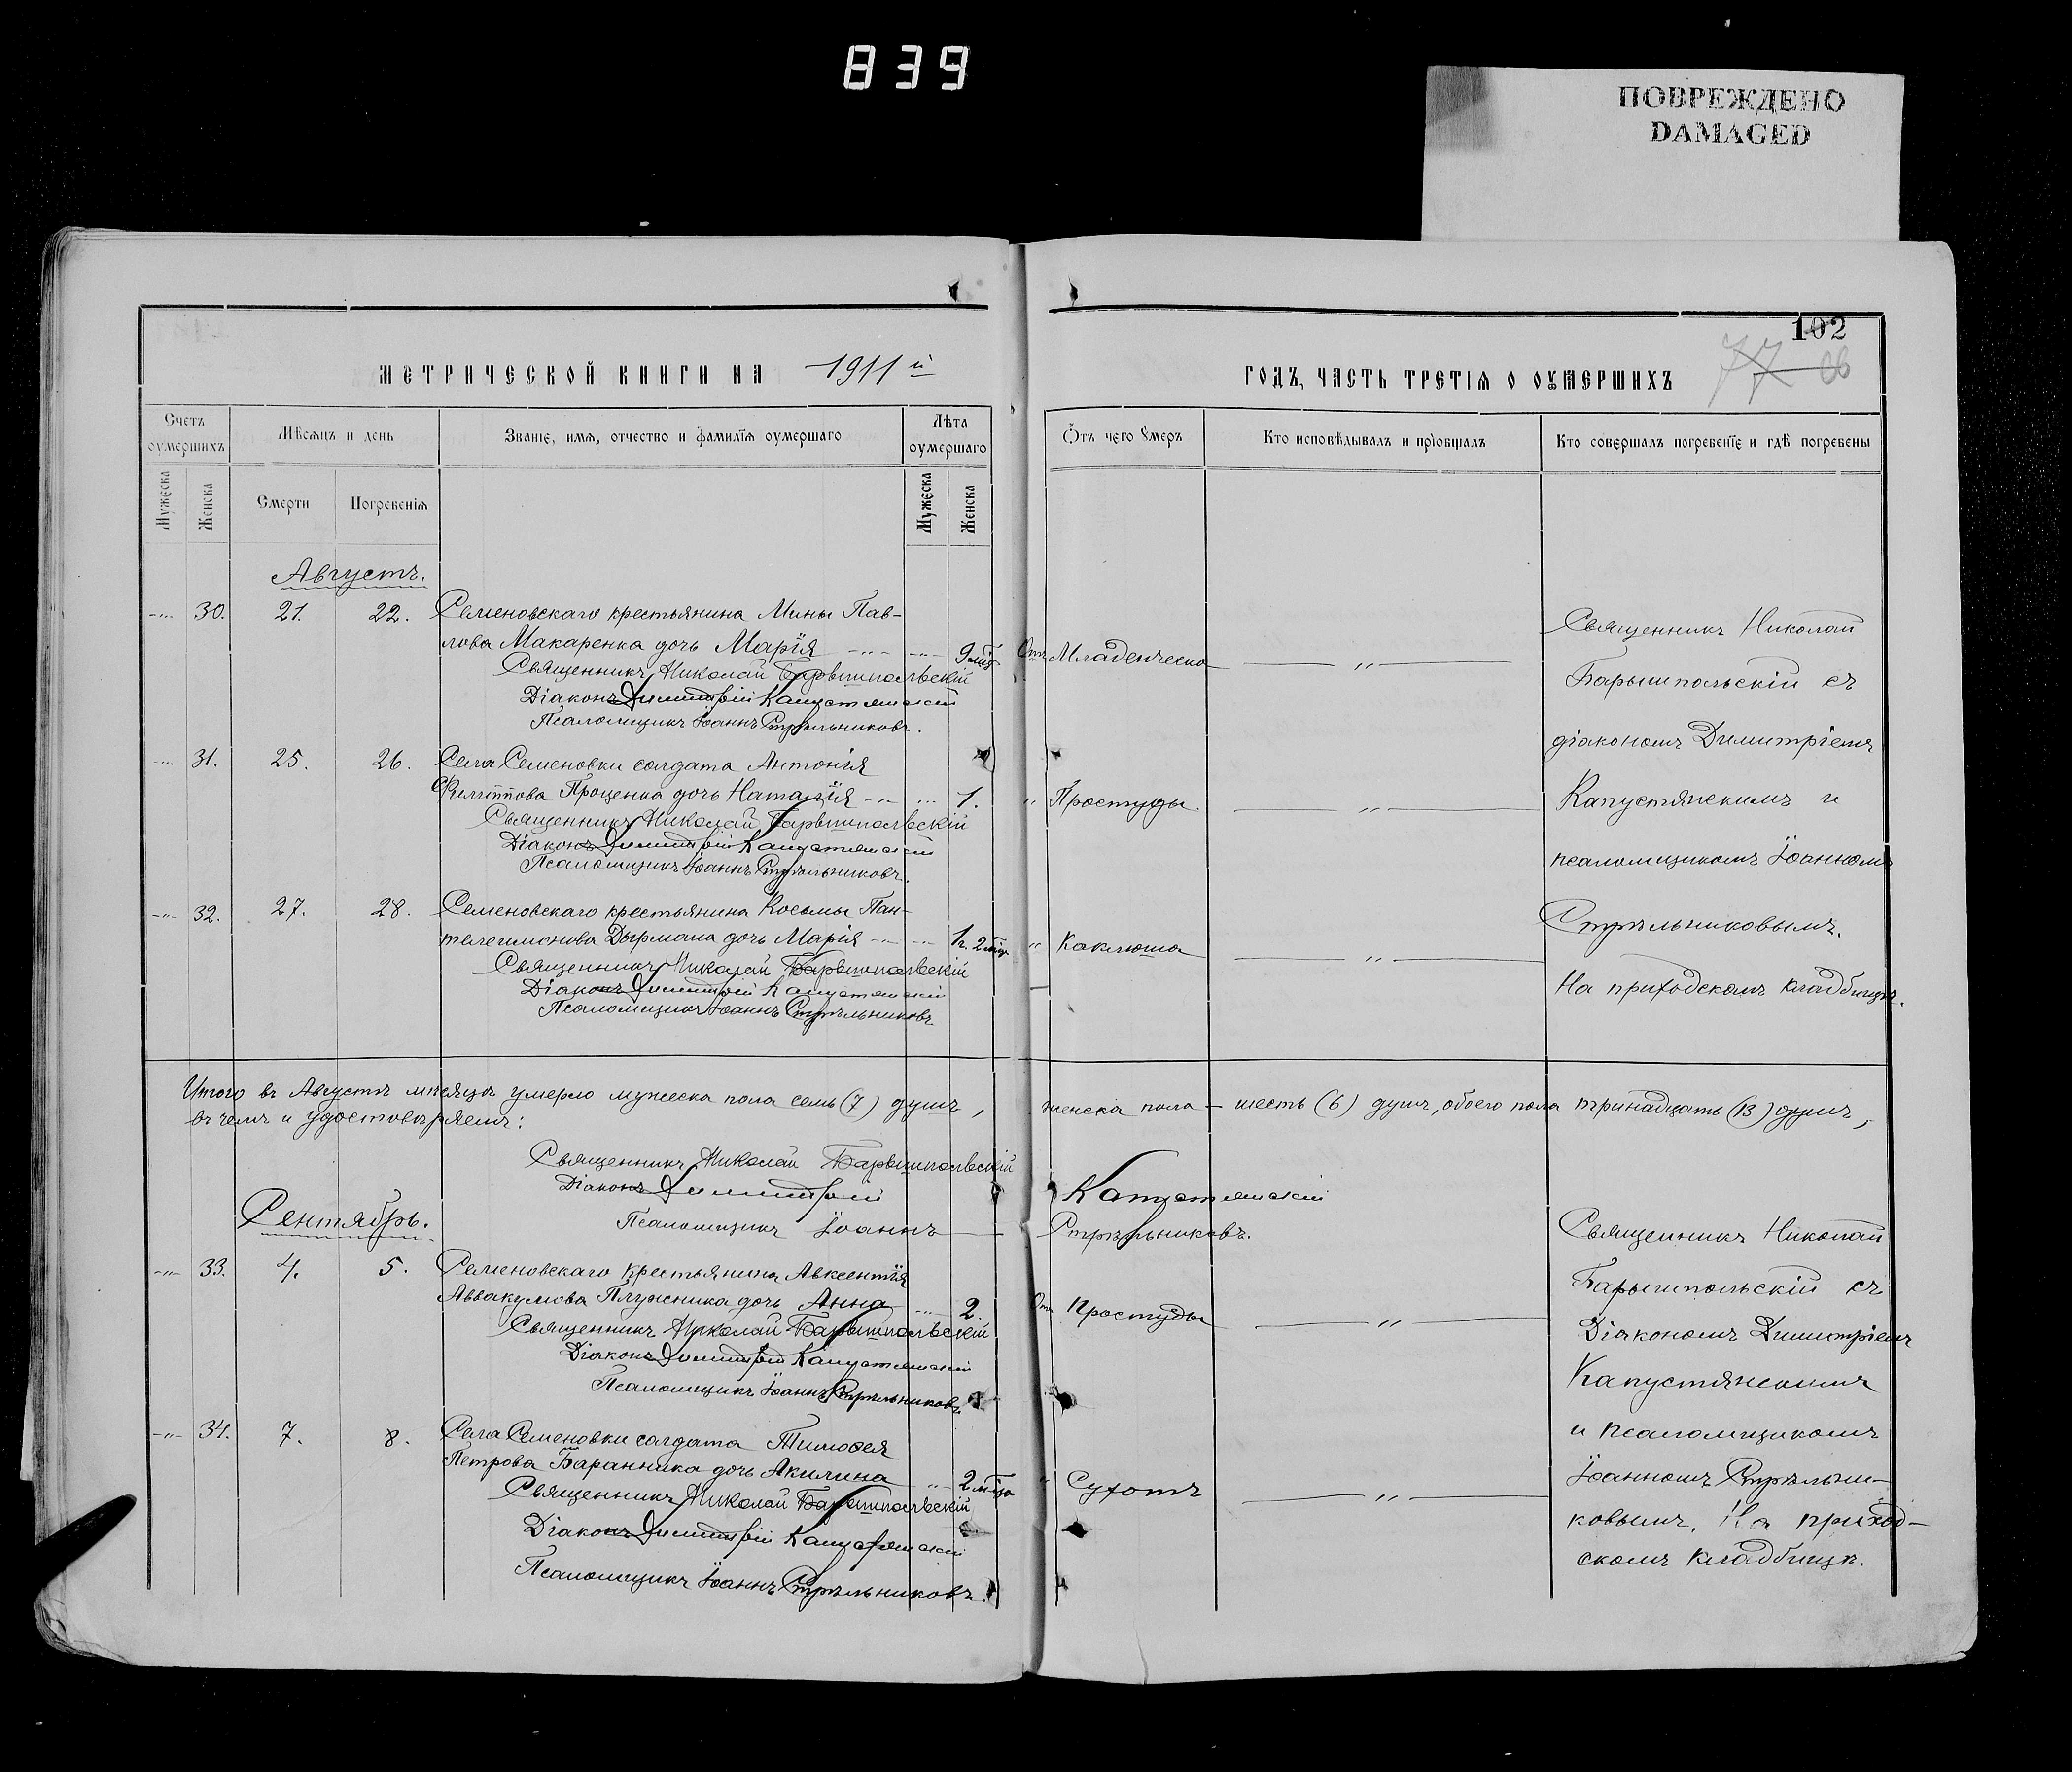 839
ПОВРЕЖДЕНО
DAMAGED
102
77
МЕТРИЧЕСКОЙ КНИГИ НА 1911й
ГОДЪ, ЧАСТЬ ТРЕТІЯ О ОУМЕРШИХЪ
Счетъ оумершихъ
Мѣсяцъ и день
Званіе, имя, отчество и фамилія оумершаго
Лѣта оумершаго
Отъ чего умеръ
Кто исповѣдывалъ и пріобщалъ
Кто совершалъ погребеніе и гдѣ погребены
Мужеска
Женска
Смерти
Погребенія
Мужеска
Женска
Августъ.
-„- 30. 21. 22. Семеновскаго крестьянина Мины Пав-
лова Макаренка дочь Марія -„- -„- 9 мцъ Отъ Младенческо -„-
Священникъ Николай Барышпольскій
Діаконъ Димитрій Капустянскій
Псаломщикъ Іоаннъ Стрѣльниковъ.
-„- 31. 25. 26. Села Семеновки солдата Антонія
Филиппова Проценка дочь Наталія -„- -„- 1. „ Простуды. -„-
Священникъ Николай Барышпольскій
Діаконъ Димитрій Капустянскій
Псаломщикъ Іоаннъ Стрѣльниковъ.
-„- 32. 27. 28. Семеновскаго крестьянина Косьмы Пан-
телеимонова Дырмана дочь Марія -„- -„- 1 г. 2 мцъ „ Коклюша -„-
Священникъ Николай Барышпольскій
Діаконъ Димитрій Капустянскій
Псаломщикъ Іоаннъ Стрѣльниковъ
Священникъ Николай
Барышпольскій съ
діакономъ Димитріемъ
Капустянскимъ и
псаломщикомъ Іоанномъ
Стрѣльниковымъ.
На приходскомъ кладбищѣ.
Итого въ Августѣ мѣсяцѣ умерло мужеска пола семь (7) душъ, женска пола — шесть (6) душъ, обоего пола тринадцать (13) душъ,
въ чемъ и удостовѣряемъ:
Священникъ Николай Барышпольскій
Діаконъ Димитрій Капустянскій
Псаломщикъ Іоаннъ — Стрѣльниковъ.
Сентябрь.
-„- 33. 4. 5. Семеновскаго крестьянина Авксентія
Аввакумова Плужника дочь Анна -„- 2. Отъ Простуды -„-
Священникъ Николай Барышпольскій
Діаконъ Димитрій Капустянскій
Псаломщикъ Іоаннъ Стрѣльниковъ
-„- 34. 7. 8. Села Семеновки солдата Тимоѳея
Петрова Баранника дочь Акилина -„- 2 мѣца „ Сухотъ -„-
Священникъ Николай Барышпольскій
Діаконъ Димитрій Капустянскій
Псаломщикъ Іоаннъ Стрѣльниковъ.
Священникъ Николай
Барышпольскій съ
Діакономъ Димитріемъ
Капустянскимъ
и псаломщикомъ
Іоанномъ Стрѣльни-
ковымъ. На приход-
скомъ кладбищѣ.